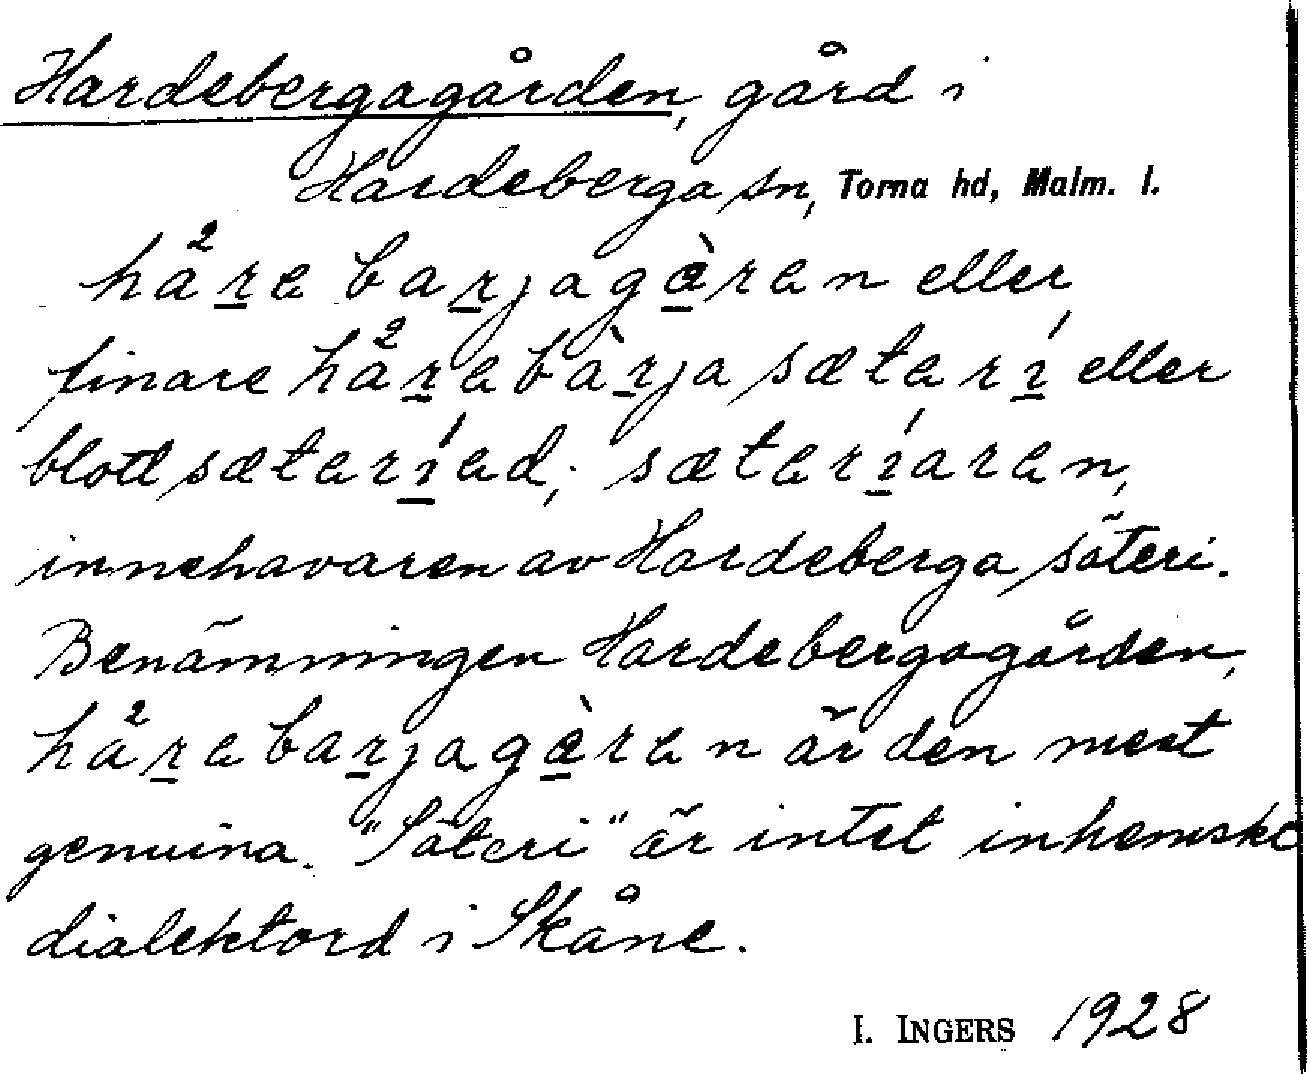 Hardebergagården, gård i
Hardeberga sn, Torna hd, Malm. l.
hå²r̲ebar̲jagè̲ren eller
finare hå²r̲ebàr̲ja sæterı̲́ eller
blott sæterı̲́ed; sæterı̲́aren,
innehavaren av Hardeberga säteri.
Benämningen Hardebergagården,
hå²r̲ebar̲jagè̲ren är den mest
genuina. "Säteri" är intet inhemskt
dialektord i Skåne.
I. INGERS 1928